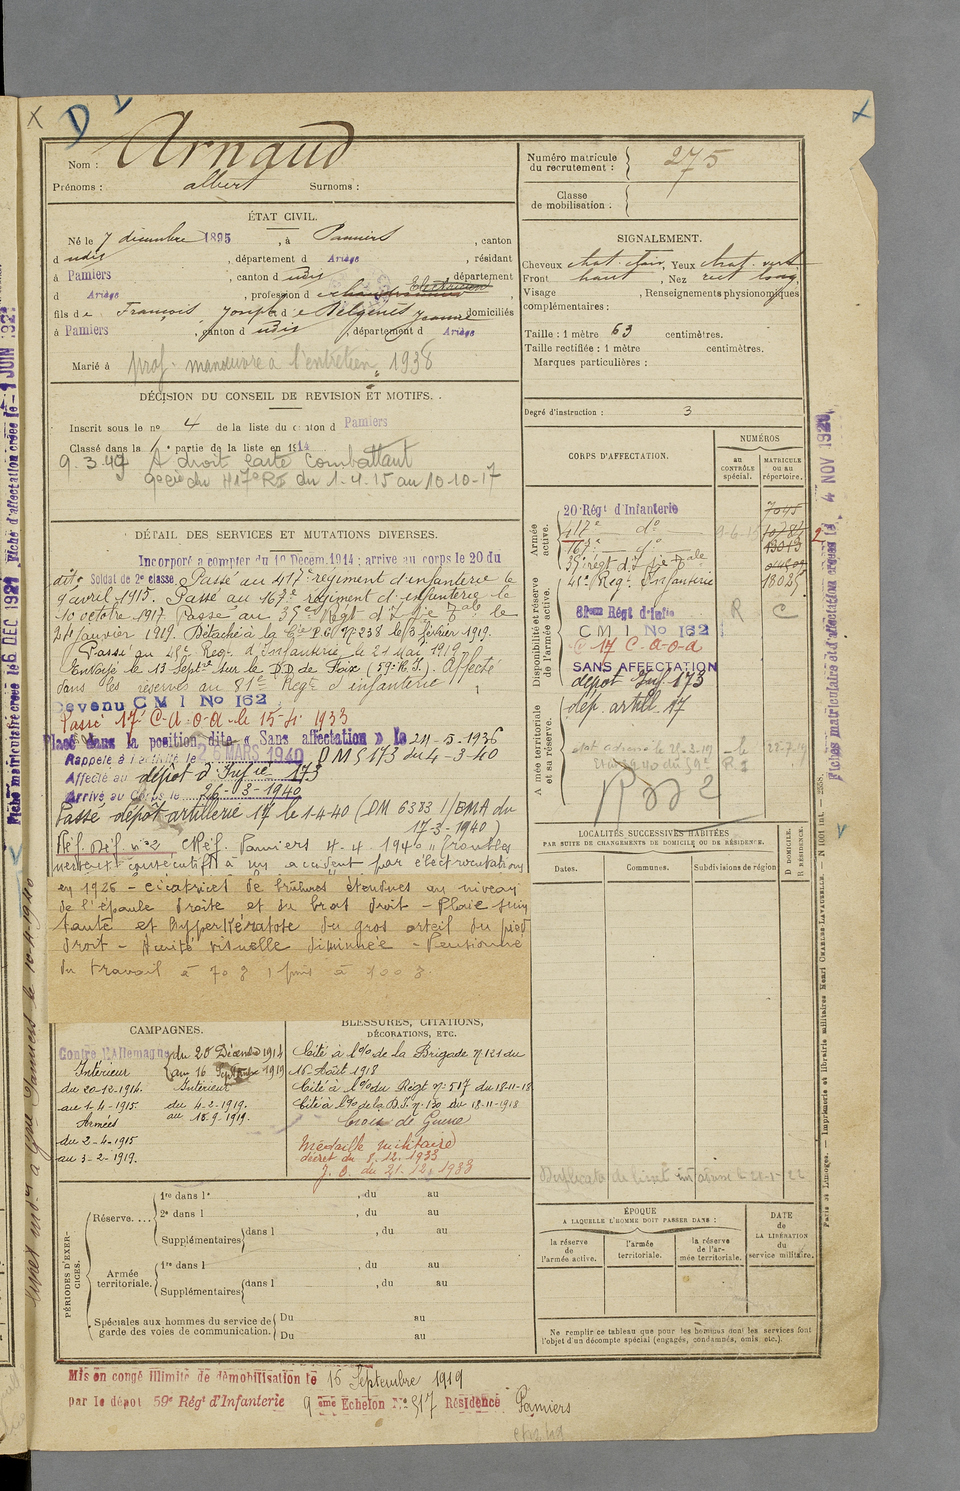 Nom : Arnaud
Prénoms : albert Surnoms :
ÉTAT CIVIL.
Né le 7 décembre 1895, à Pamiers, canton
d udis, département d Ariège, résidant
à Pamiers, canton d udis, département
d Ariège, profession d Electricien,
fils de François, Joseph d e Jeanne domiciliés
à Pamiers, canton d udis, département d Ariège
Marié à prof. manœuvre à l'entretien, 1938
DÉCISION DU CONSEIL DE REVISION ET MOTIFS.
Inscrit sous le nº 4 de la liste du canton d Pamiers
Classé dans la 1e partie de la liste en 1914
9.3.49 A droit Carte Combattant
9e Cie du 417e RI du 1-4-15 au 10-10-17
DÉTAIL DES SERVICES ET MUTATIONS DIVERSES.
Incorporé à compter du 19 Décem. 1914 : arrivé au corps le 20 du
dit. Soldat de 2e classe. Passé au 417e régiment d'infanterie le
9 avril 1915. Passé au 167e régiment d'infanterie le
10 octobre 1917 Passé au 35e Régt d'I
24 janvier 1919. Détaché à la le 3 février 1919.
Passé au 48e Regt. d'Infanterie le 21 Mai 1919
Envoyé le 13 Septre sur le D.D de Foix (59e R.I). Affecté
dans les réserves au 81e Regt d'infanterie
Devenu C M I No 162
Passé 17e C.O.A le 15-4-1933
Placé dans la position dite « Sans affectation » le 24-5-1936
Rappelé à l'activité le 26 MARS 1940 DM 5173 du 4-3-40
Affecté au dépôt d'Infie 173
Arrivé au Corps le 26-3-1940
Passé dépôt artillerie 17 le 1-4-40 (DM 6383 /EMA du
17-3-1940)
Réf. Déf. nº 2 CRéf. Pamiers 4-4 1940 "Troubles
nerveux consécutifs à un accident par électrocution
en 1926 - cicatrices de brûlures étendues au niveau
de l'épaule droite et du bras droit - Plaie suin
tante et hyperkératose du gros orteil du pied
droit - Acuité visuelle diminuée - Pensionné
du travail à 70 %
CAMPAGNES.
Contre l'Allemagne du 20 Décembre 1914
au 16 Septembre 1919
Intérieur
du 20-12-1914.
au 1-4-1915.
Armées
du 2-4-1915
au 3-2-1919.
Intérieur
du 4-2-1919.
au 15-9-1919.
BLESSURES, CITATIONS,
DÉCORATIONS, ETC.
Cité à l'O/ de la Brigade nº 121 du
16 Août 1918
Cité à l'O/ du Régt nº 517 du 18-11-18
Cité à l'O/ de la D.I. nº 130 du 18-11-1918
Croix de Guerre
Médaille militaire
décret du 8.12.1933
J.O. du 31.12.1933
PÉRIODES D'EXERCICES.
Réserve....
1re dans l , du au
2e dans l , du au
Supplémentaires dans l , du au
Armée
territoriale.
1re dans l , du au
Supplémentaires dans l , du au
Spéciales aux hommes du service de
garde des voies de communication.
Du au
Du au
Mis en congé illimité de démobilisation le 16 Septembre 1919
par le dépôt 59e Régt d'Infanterie 9 ème Echelon No 517 Résidence Pamiers
Numéro matricule
du recrutement : 275
Classe
de mobilisation :
SIGNALEMENT.
Cheveux chat. clair, Yeux chat. vert
Front haut, Nez rect long
Visage , Renseignements physionomiques
complémentaires :
Taille : 1 mètre 63 centimètres.
Taille rectifiée : 1 mètre centimètres.
Marques particulières :
Degré d'instruction : 3
CORPS D'AFFECTATION.
NUMÉROS
au
CONTRÔLE
spécial.
MATRICULE
ou au
répertoire.
Armée
active.
20 Régt d'Infanterie
417e dº
167e dº
35e régt d'I
48e Regt. Infanterie
Disponibilité et réserve
de l'armée active.
81ème Régt d'Infie R C
C M I No 162
17 C-O-A
SANS AFFECTATION
dépôt Inf. 173
Armée territoriale
et sa réserve.
dép. artill. 17
LOCALITÉS SUCCESSIVES HABITÉES
PAR SUITE DE CHANGEMENTS DE DOMICILE OU DE RÉSIDENCE.
Dates.
Communes.
Subdivisions de région
D. DOMICILE.
R. RÉSIDENCE.
ÉPOQUE
A LAQUELLE L'HOMME DOIT PASSER DANS :
la réserve
de
l'armée active.
l'armée
territoriale.
la réserve
de l'ar-
mée territoriale.
DATE
de
LA LIBÉRATION
du
service militaire.
Ne remplir ce tableau que pour les hommes dont les services font
l'objet d'un décompte spécial (engagés, condamnés, omis, etc.).
Paris et Limoges. — Imprimerie et librairie militaires Henri CHARLES-LAVAUZELLE. — N 1001 int. — 2558.
Fiches matriculaire et d'affectation créées le 4 NOV 1920
Fiche matriculaire créée le 6 DEC 1921 Fiche d'affectation créée le 1 JUIN 192